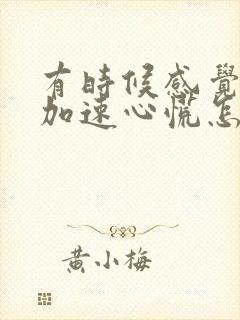 有時候感覺
加速心慌怎
黃小梅